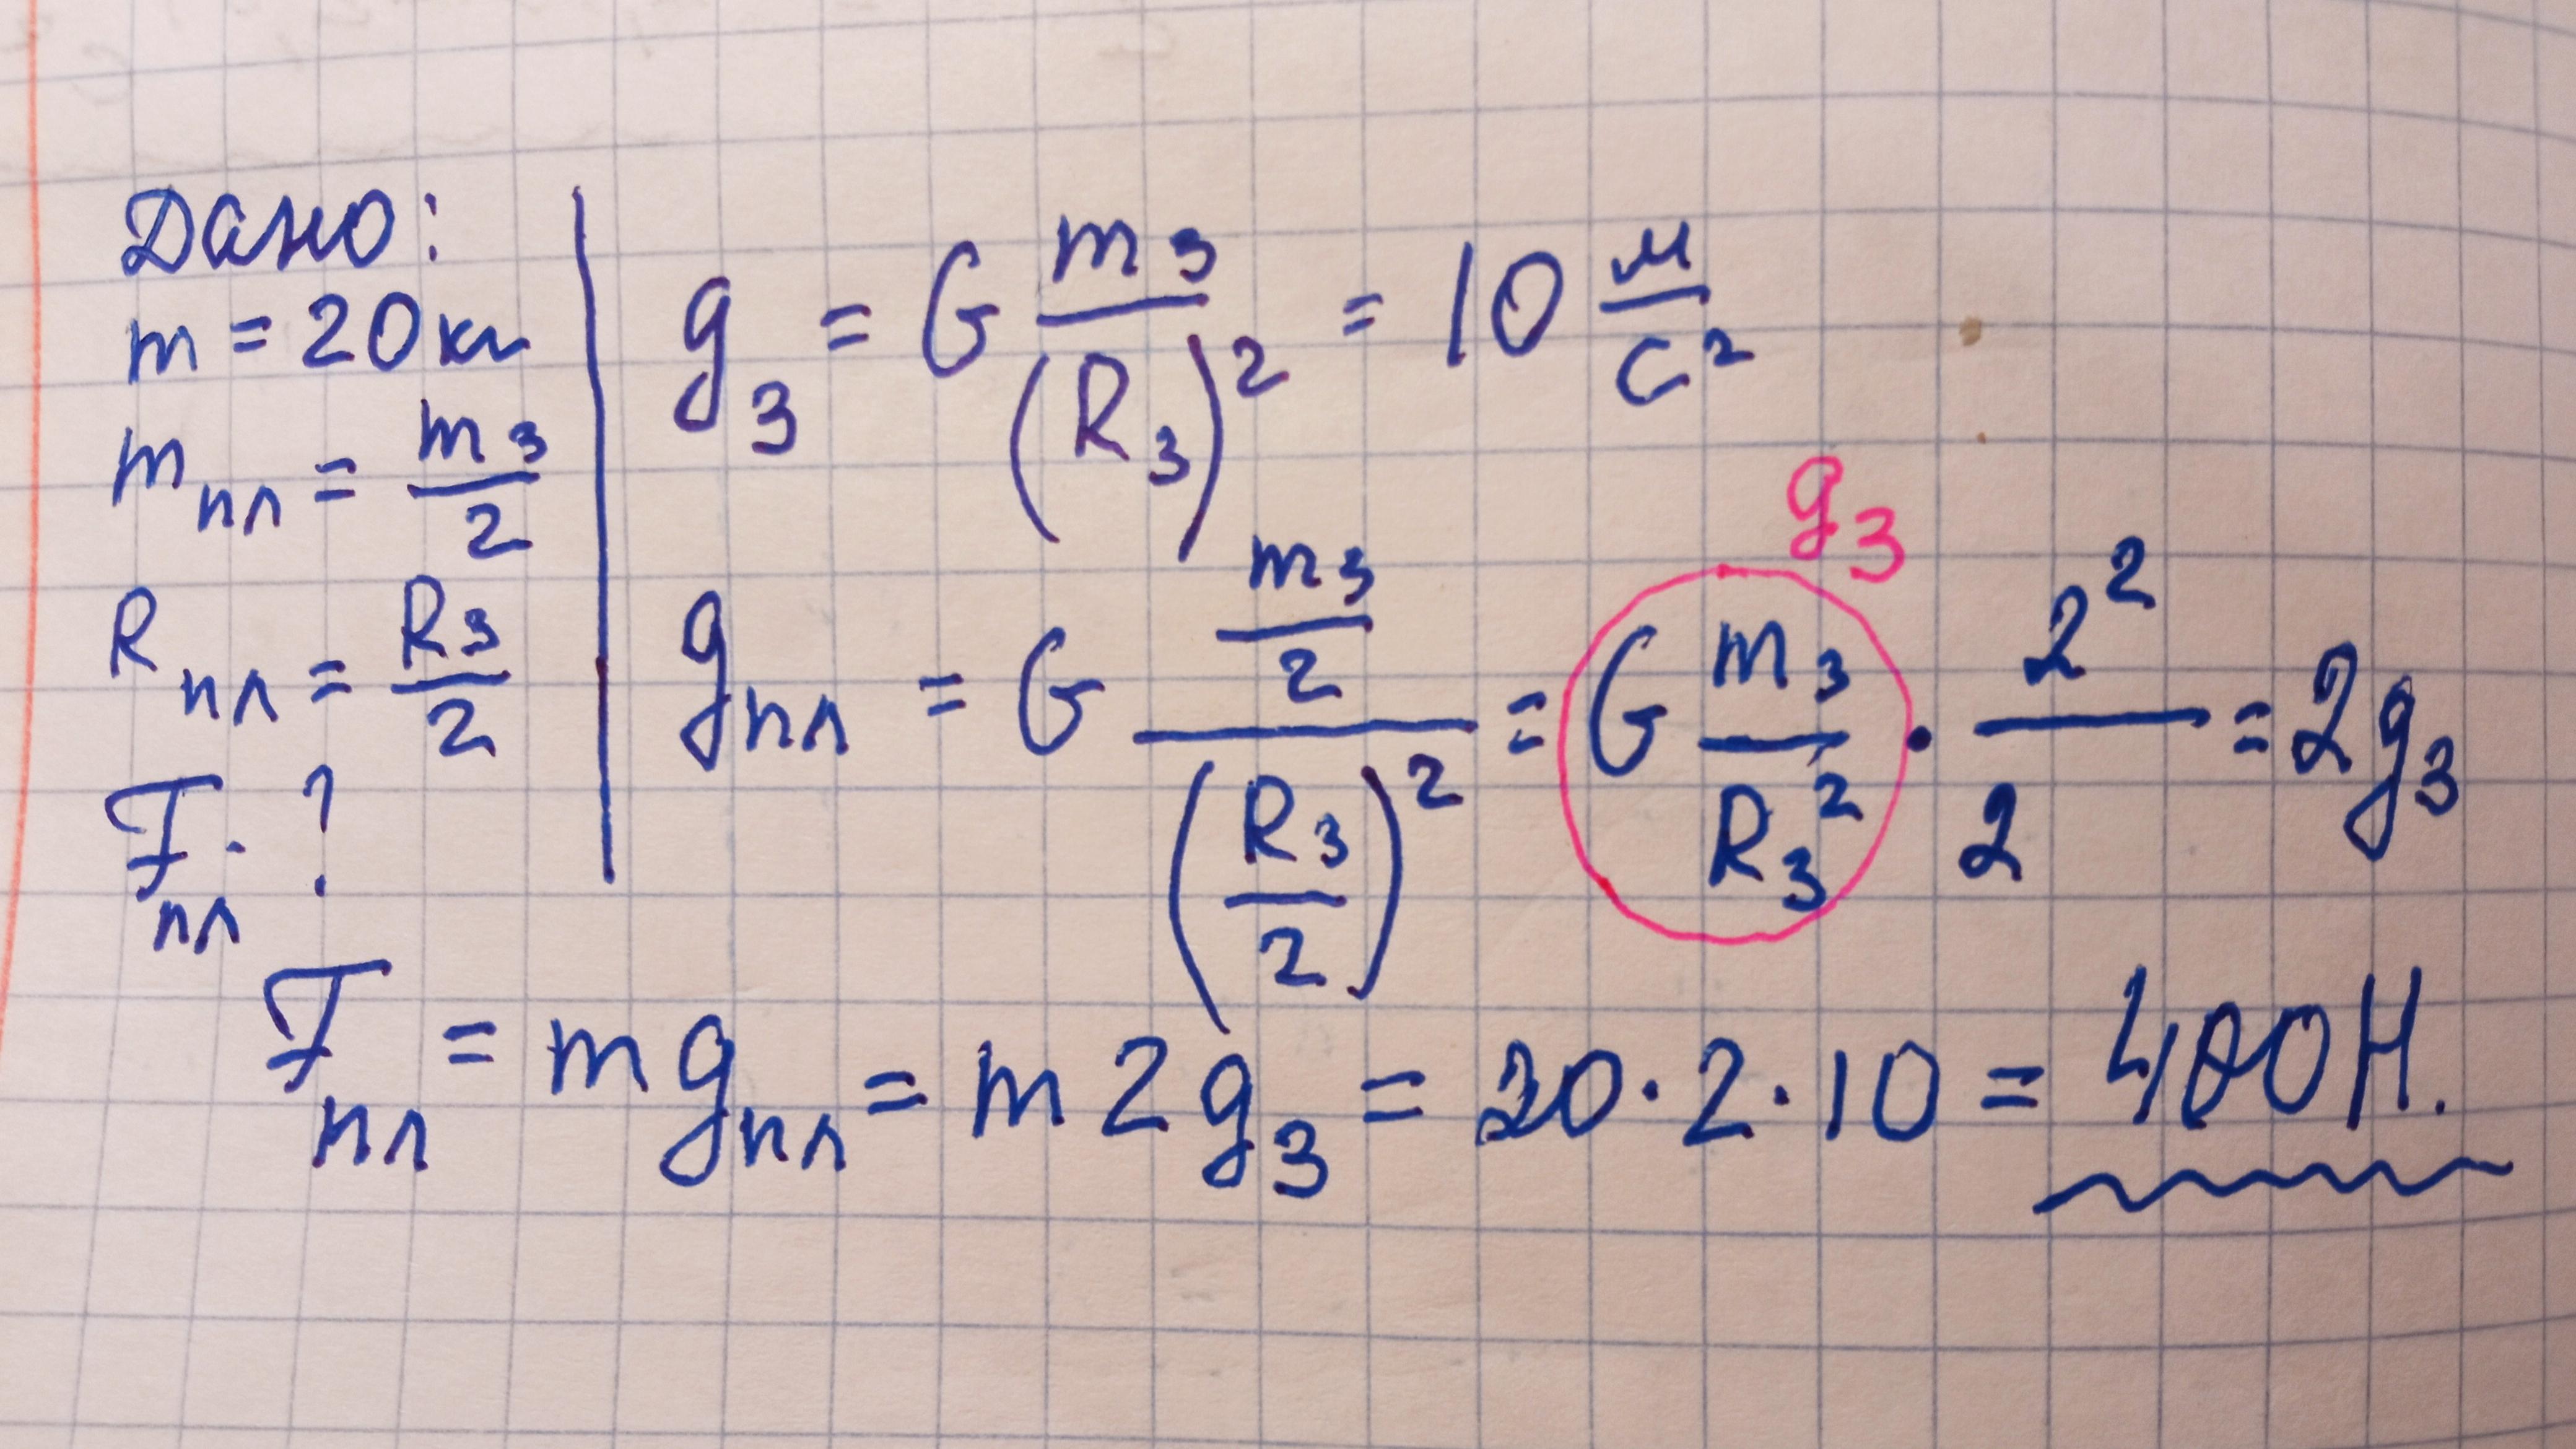 Дано:
m = 20 кг
m пл = m з / 2
R пл = R з / 2
F пл - ?
g з = G m з / (R з)² = 10 м/с²
g з
g пл = G (m з / 2) / (R з / 2)² = G m з / R з² · 2² / 2 = 2 g з
F пл = m g пл = m 2 g з = 20 · 2 · 10 = 400 Н.